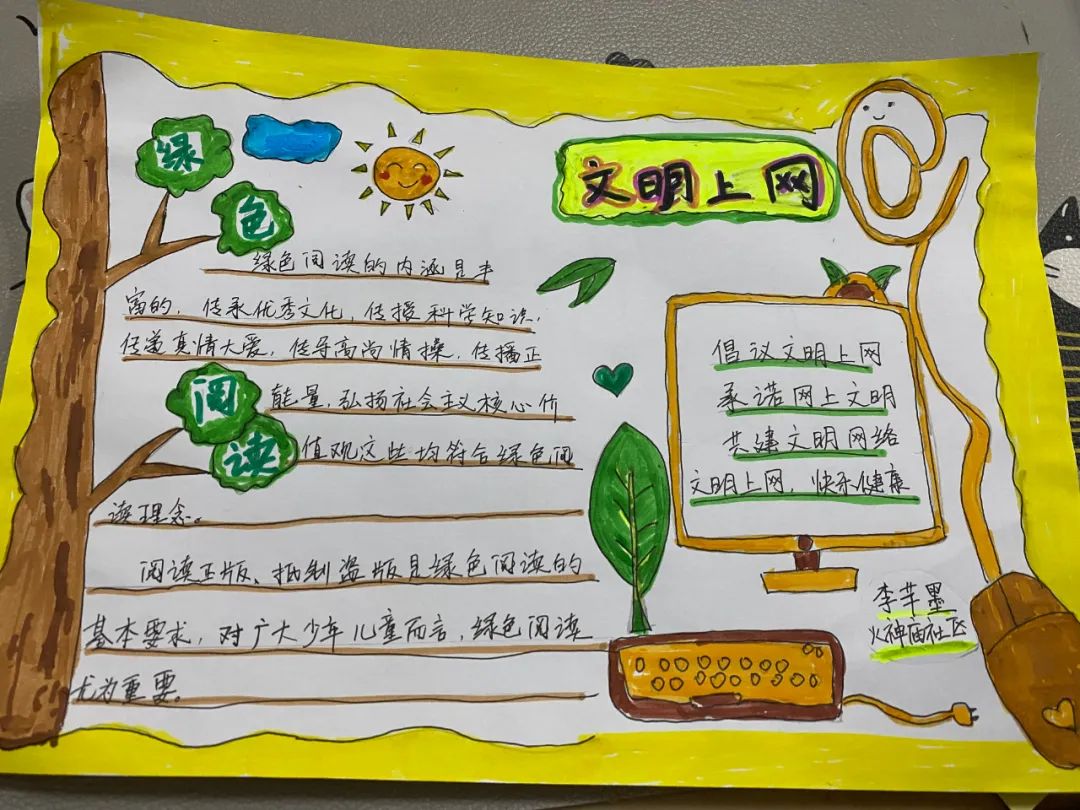 绿色
阅读
绿色阅读的内涵是丰
富的，传承优秀文化，传授科学知识，
传递真情大爱，传导高尚情操，传播正
能量，弘扬社会主义核心价
值观这些均符合绿色阅
读理念。
阅读正版、抵制盗版是绿色阅读的
基本要求，对广大少年儿童而言，绿色阅读
尤为重要。
文明上网
倡议文明上网
承诺网上文明
共建文明网络
文明上网，快乐健康
李芊墨
火神庙社区